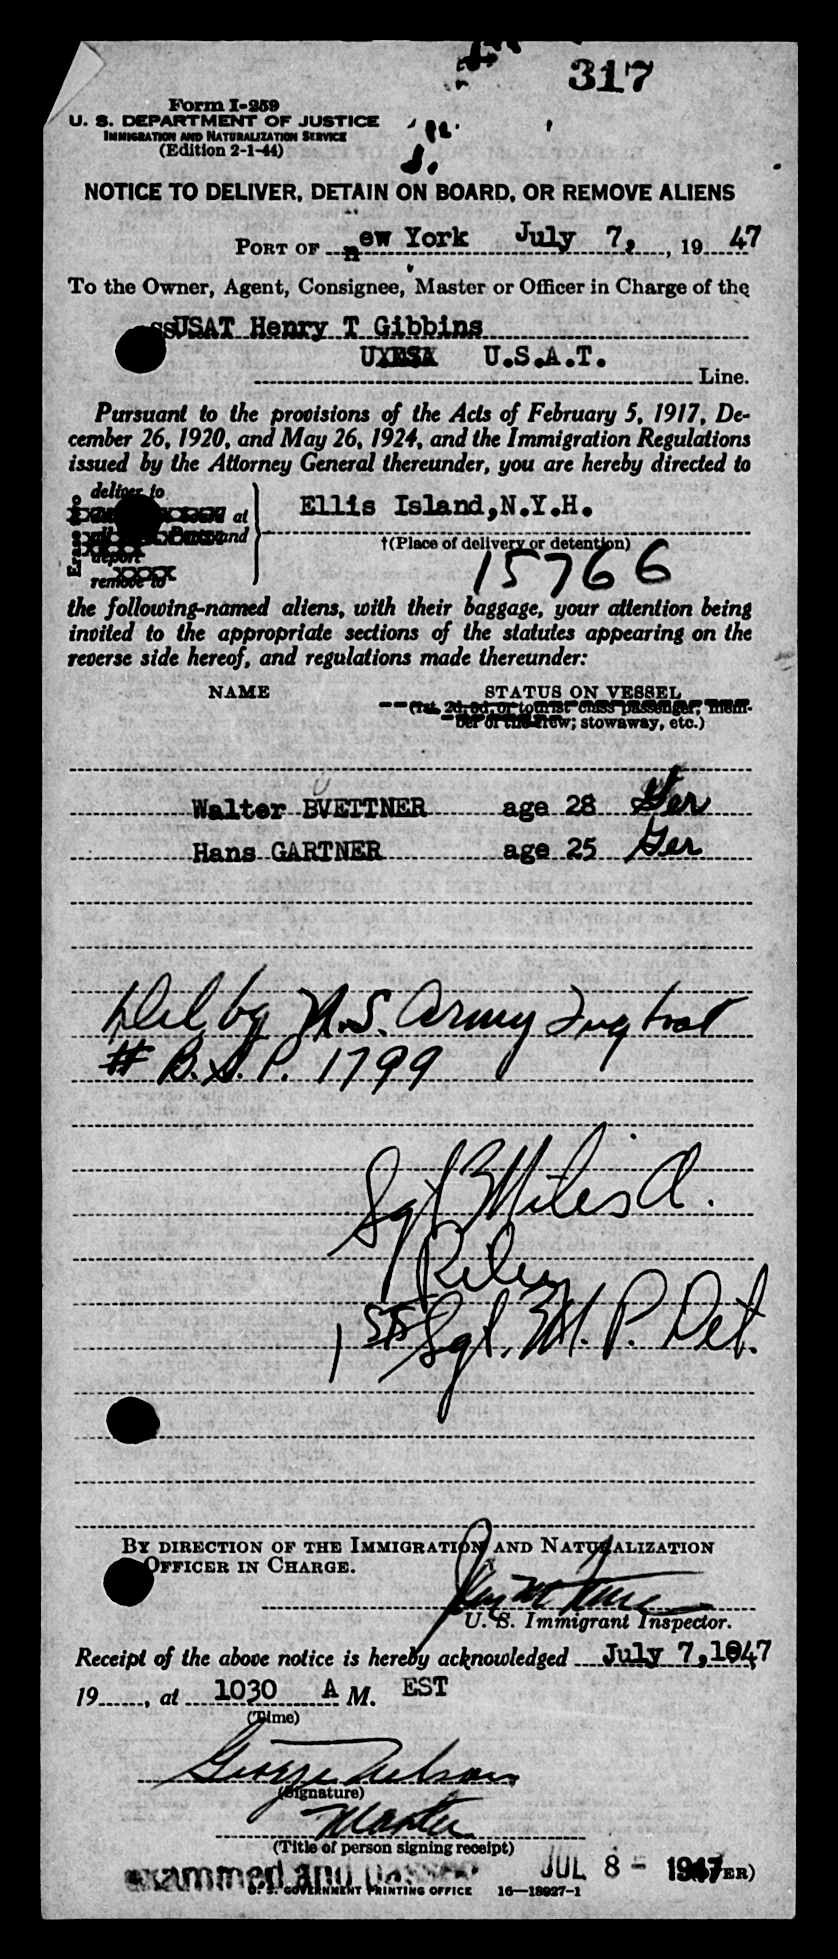 317
Form I-259
U. S. DEPARTMENT OF JUSTICE
IMMIGRATION AND NATURALIZATION SERVICE
(Edition 2-1-44)
NOTICE TO DELIVER, DETAIN ON BOARD, OR REMOVE ALIENS
PORT OF new York July 7, , 19 47
To the Owner, Agent, Consignee, Master or Officer in Charge of the
ssUSAT Henry T Gibbins
U.S.A.T.
Line.
Pursuant to the provisions of the Acts of February 5, 1917, De-
cember 26, 1920, and May 26, 1924, and the Immigration Regulations
issued by the Attorney General thereunder, you are hereby directed to
deliver to
at
and
deport
remove to
Ellis Island,N.Y.H.
†(Place of delivery or detention)
15766
the following-named aliens, with their baggage, your attention being
invited to the appropriate sections of the statutes appearing on the
reverse side hereof, and regulations made thereunder:
NAME STATUS ON VESSEL
(1st, 2d, 3d, or tourist class passenger; mem-
ber of the crew; stowaway, etc.)
Walter BVETTNER age 28 Ger
Hans GARTNER age 25 Ger
Del by U.S. Army Tug boat
# B.S.P. 1799
Sgt Miles A.
Riley
1st Sgt. M. P. Det.
BY DIRECTION OF THE IMMIGRATION AND NATURALIZATION
OFFICER IN CHARGE.
U. S. Immigrant Inspector.
Receipt of the above notice is hereby acknowledged July 7,1947
19 , at 1030 A M. EST
(Time)
George Nelson
(Signature)
Master
(Title of person signing receipt)
examined and passed JUL 8 - 1947
U. S. GOVERNMENT PRINTING OFFICE 16—18927-1